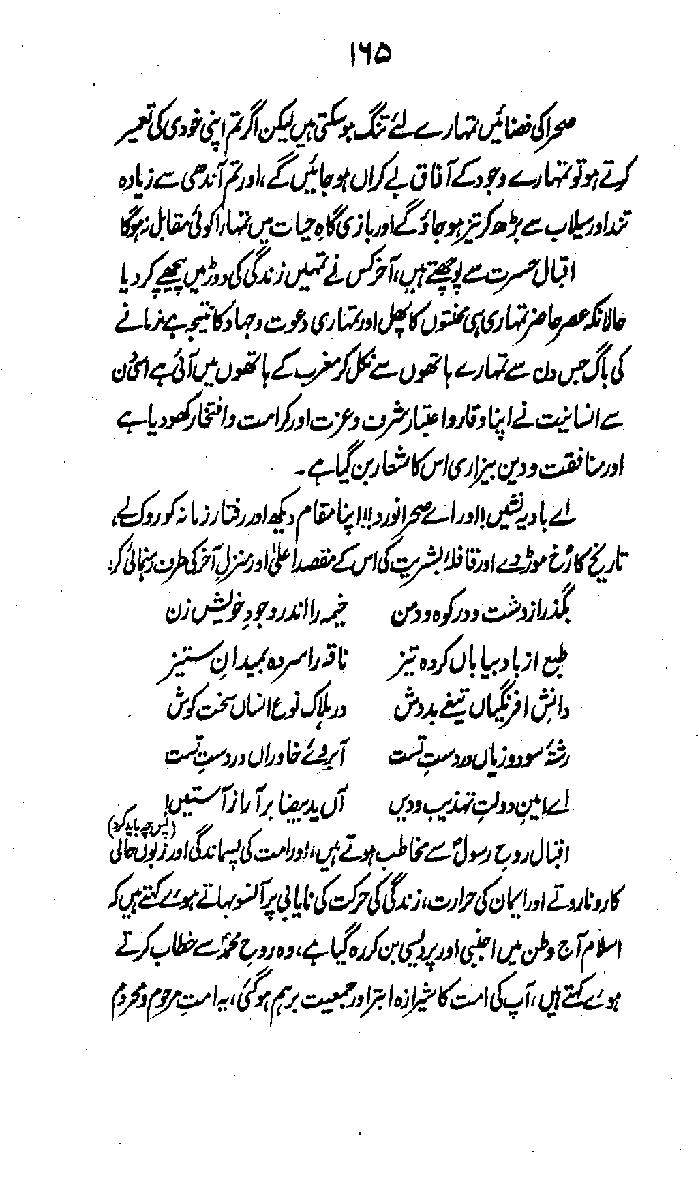 ۱۶۵
صحرا کی فضائیں تمہارے لئے تنگ ہوسکتی ہیں لیکن اگر تم اپنی خودی کی تعمیر
کرتے ہو تو تمہارے وجود کے آفاق بے کراں ہوجائیں گے، اور تم آندھی سے زیادہ
تند اور سیلاب سے بڑھ کر تیز ہو جاؤ گے اور بازی گاہِ حیات میں تمہارا کوئی مقابل نہ ہوگا
اقبال حسرت سے پوچھتے ہیں، آخر کس نے تمہیں زندگی کی دوڑ میں پیچھے کردیا
حالانکہ عصر حاضر تمہاری ہی محنتوں کا پھل اور تمہاری دعوت و جہاد کا نتیجہ ہے زمانے
کی باگ جس دن سے تمہارے ہاتھوں سے نکل کر مغرب کے ہاتھوں میں آئی ہے اسی دن
سے انسانیت نے اپنا وقار و اعتبار شرف و عزت اور کرامت و افتخار کھو دیا ہے
اور منافقت و دین بیزاری اس کا شعار بن گیا ہے۔
اے بادیہ نشیں!! اور اے صحرا نورد!!! اپنا مقام دیکھ اور رفتار زمانہ کو روک لے،
تاریخ کا رُخ موڑ دے اور قافلۂ بشریت کی اس کے مقصد اعلیٰ اور منزلِ آخر کی طرف رہنمائی کر:
بگذر از دشت و در و کوہ و دمن خیمہ را اندر وجودِ خویش زن
طبع از باد بیاباں کردہ تیز ناقہ را سر دہ بمیدانِ ستیز
دانش افرنگیاں تیغے بدوش در ہلاک نوع انساں سخت کوش
رشتۂ سود و زیاں در دستِ تست آبروئے خاوراں در دستِ تست
اے امینِ دولتِ تہذیب و دیں آں یدِ بیضا برآر از آستیں!
(پس چہ باید کرد)
اقبال روحِ رسولؐ سے مخاطب ہوتے ہیں، اور امت کی پسماندگی اور زبوں حالی
کا رونا روتے اور ایمان کی حرارت، زندگی کی حرکت کی نایابی پر آنسو بہاتے ہوئے کہتے ہیں کہ
اسلام آج وطن میں اجنبی اور پردیسی بن کر رہ گیا ہے، وہ روحِ محمدؐ سے خطاب کرتے
ہوئے کہتے ہیں، آپ کی امت کا شیرازہ ابتر اور جمعیت برہم ہوگئی، یہ امتِ مرحوم و محروم